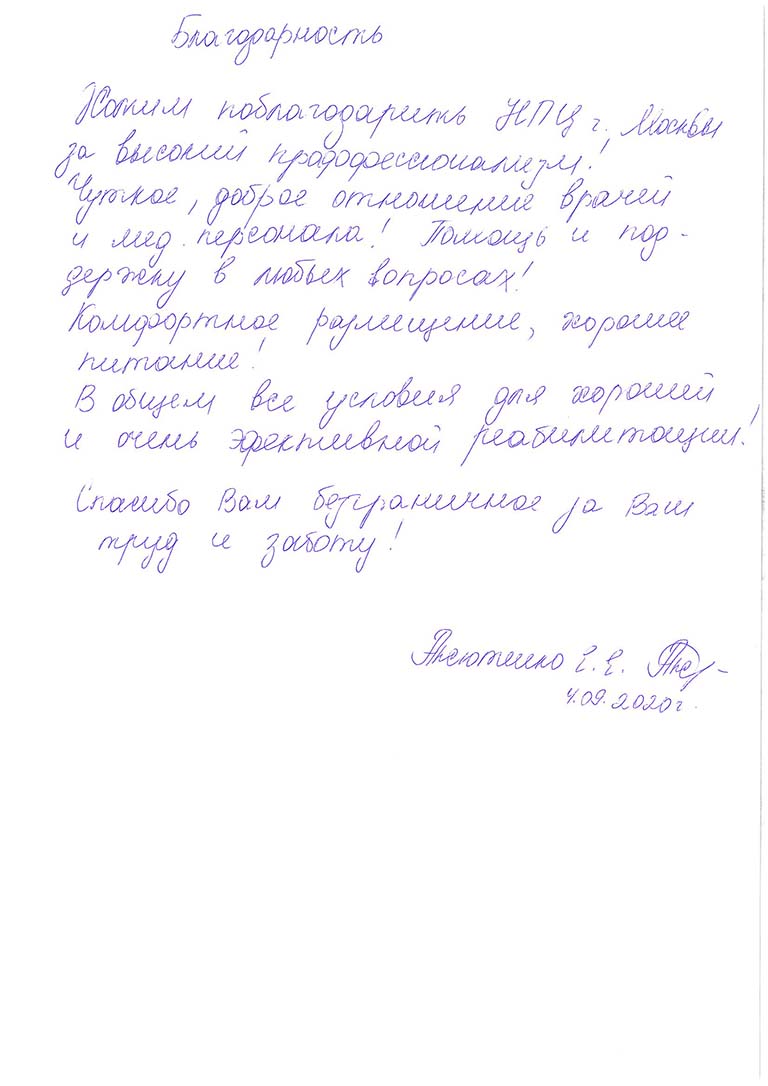 Благодарность
Хотим поблагодарить НПЦ г. Москвы
за высокий прадофессионализм!
Чуткое, доброе отношение врачей
и мед. персонала! Помощь и под-
держку в любых вопросах!
Комфортное размещение, хорошее
питание!
В общем все условия для хорошей
и очень эфективной реабилитации!
Спасибо Вам безграничное за Ваш
труд и заботу!
Е.Е.
4.09.2020г.